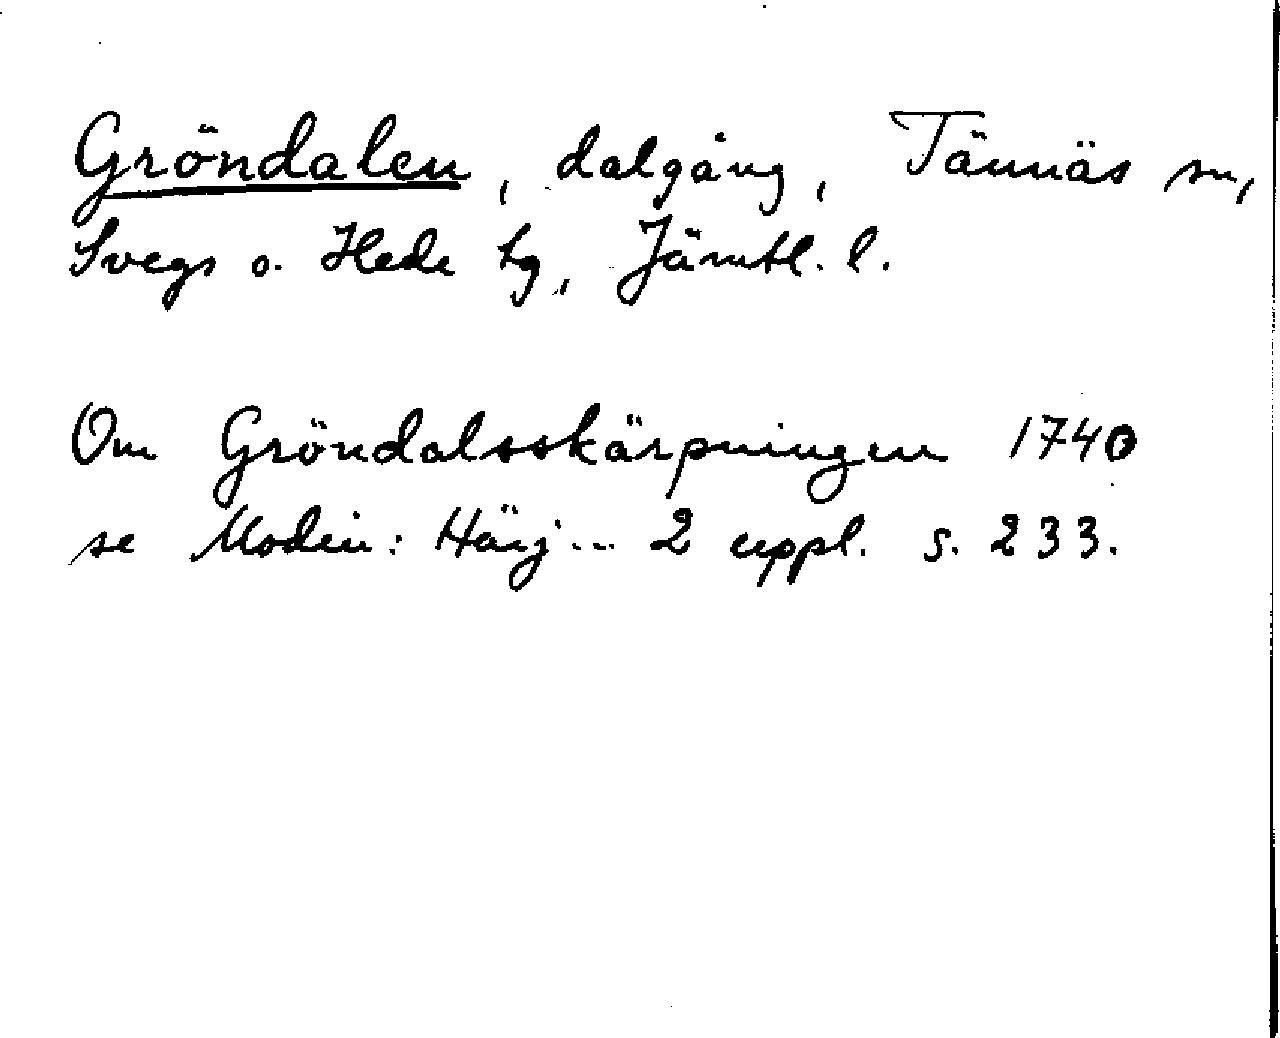 Gröndalen, dalgång, Tännäs sn,
Svegs o. Hede tg, Jämtl. l.
Om Gröndalsskärpningen 1740
se Modin: Härj... 2 uppl. s. 233.